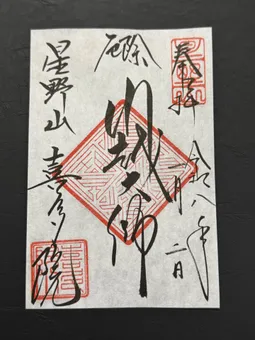 奉拝
令和八年
一月二日
厄除
川越大师
星野山
喜多院